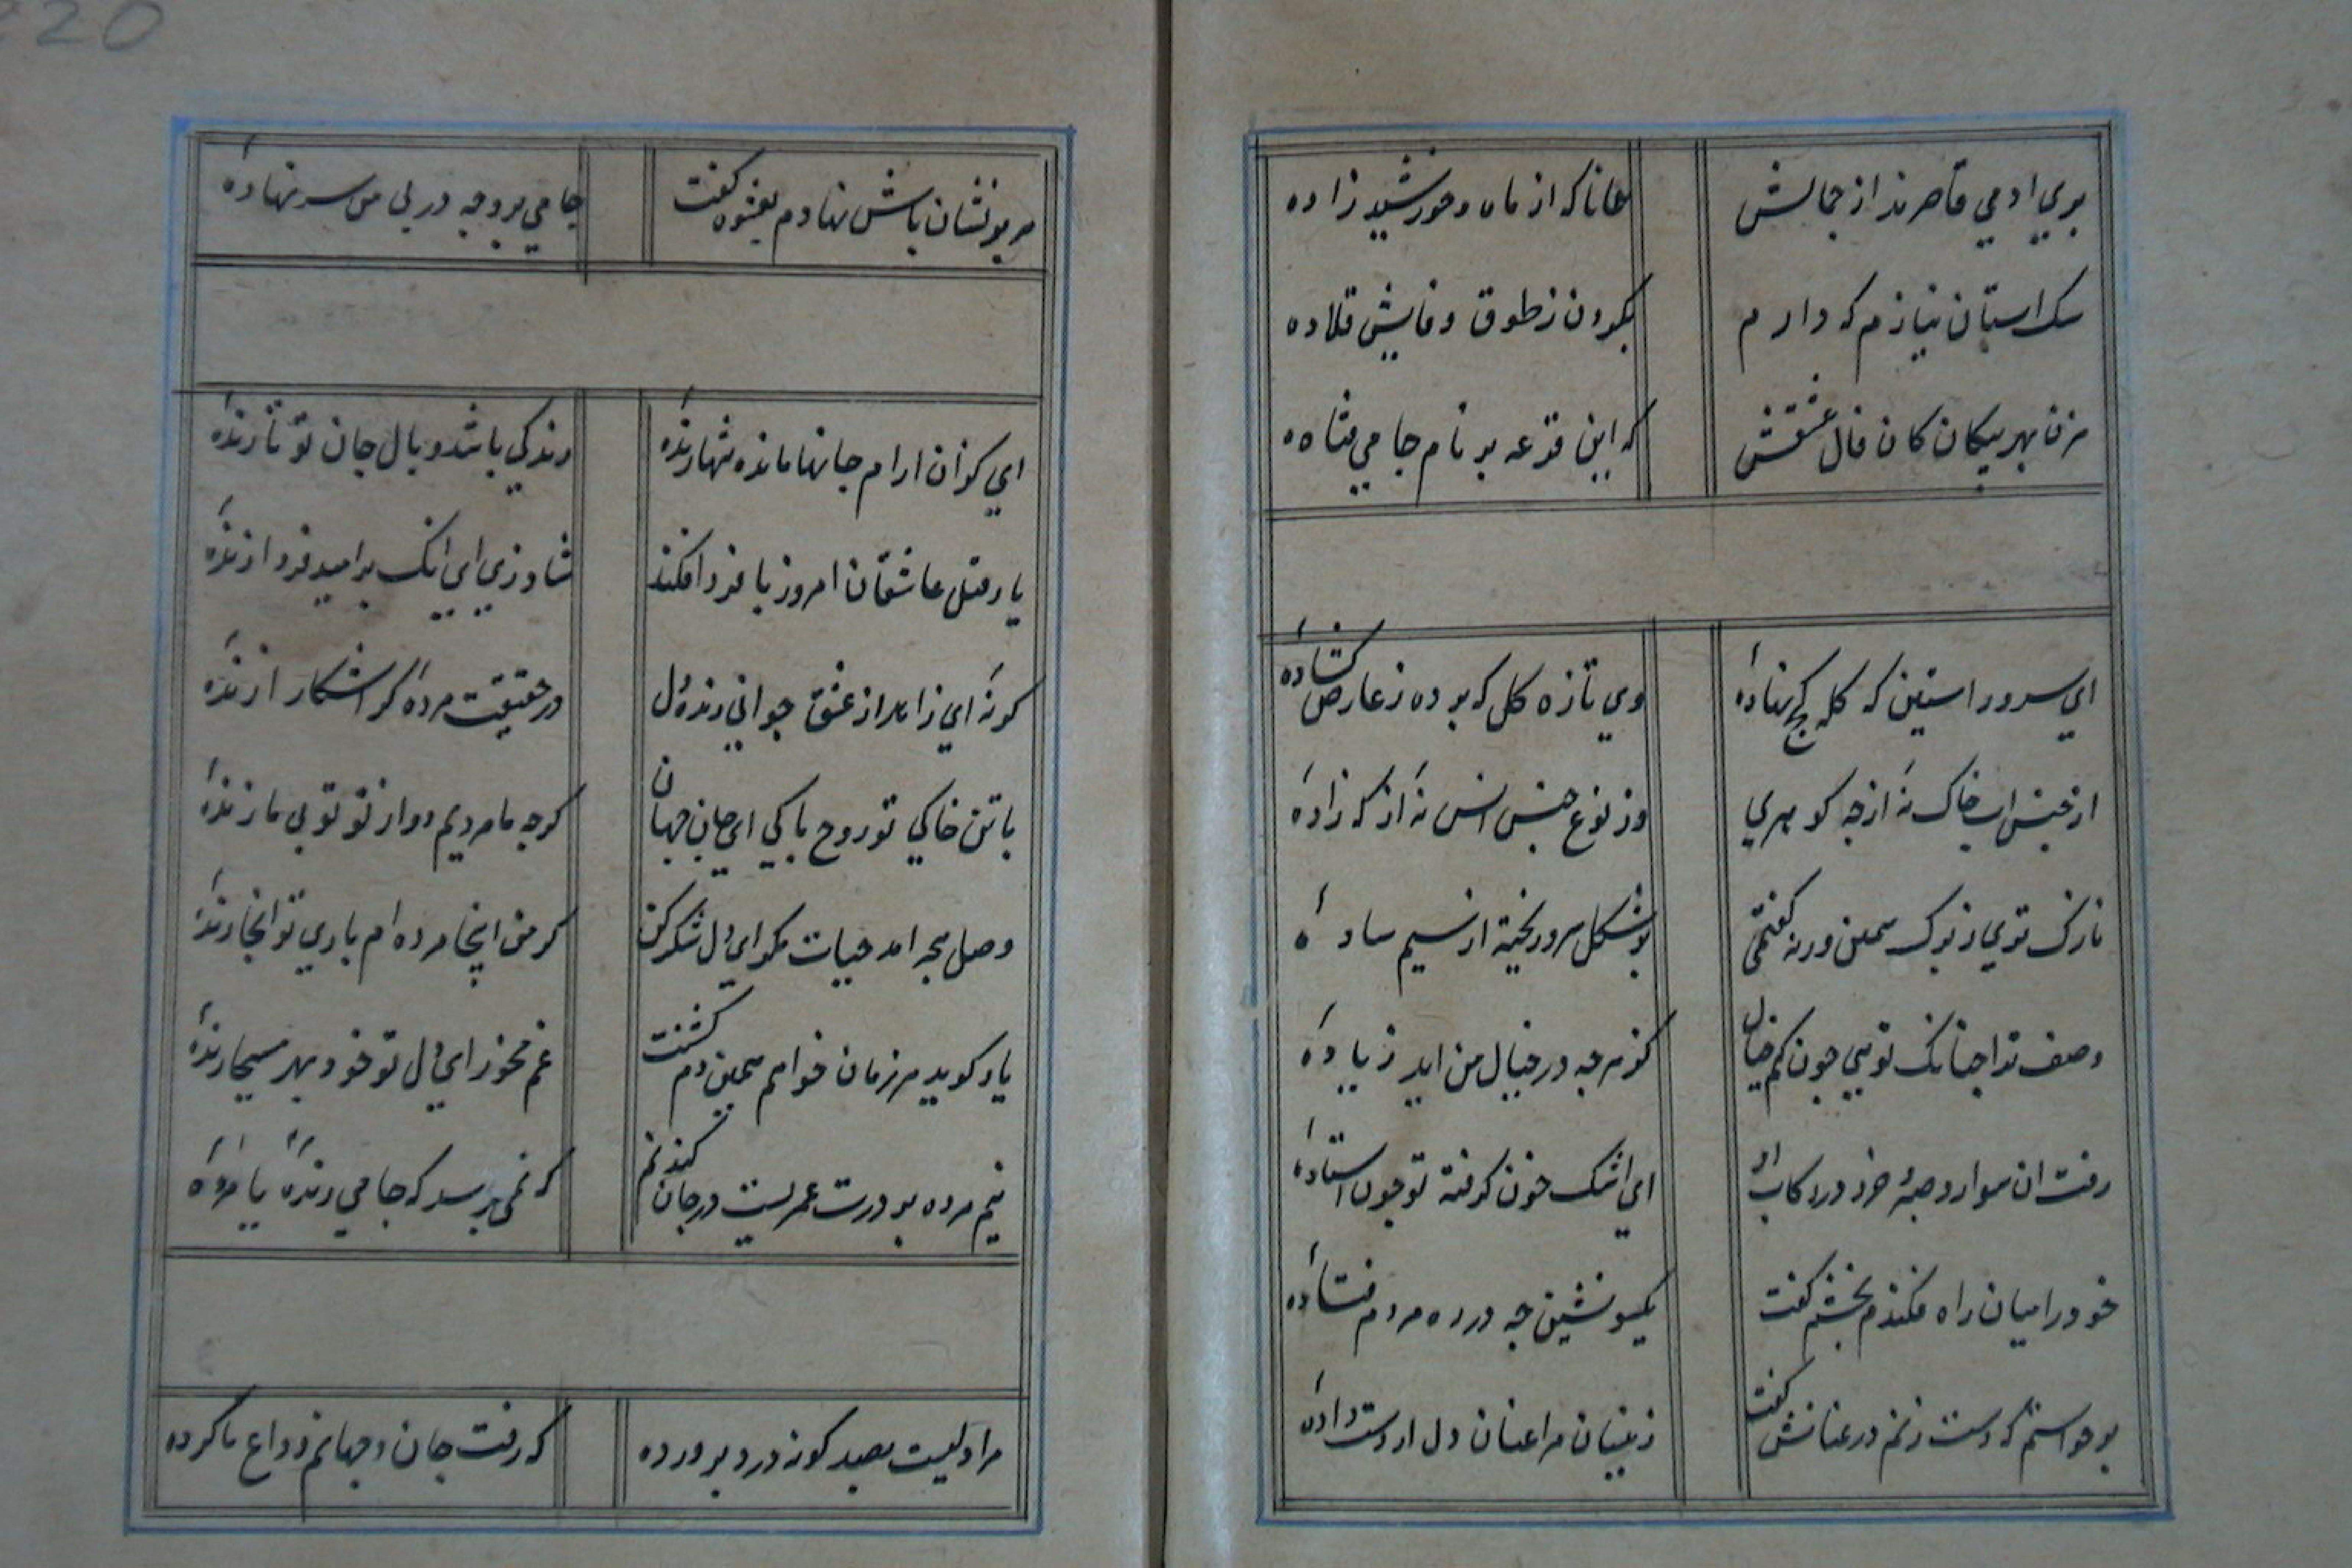 220
بوي ادمي قاصرند از جمالش همانا که از ماه وخورشید زاده
سک استان نیازم که دارم بکردن ز طوق وفایش قلاده
مزن بهر بیکان کان فال عشقش که این قرعه بر نام جامي فتاده
اي سرو راستین که کله کج نهاده وي تازه کل که برده ز عارض کشاده
از جنس اب خاک نه از چه کوهري وز نوع جنس انس نه از که زاده
نازک تري از برک سمن ورنه کفتمي بر شکل سرو ریخته از سیم ساده
وصف ترا جنانک تویي جون کنم خیال کز هرجه در خیال من اید زیاده
رفت ان سوار و صبر و خرد در رکاب او اي اشک خون کرفته تو جون استاده
خود را میان راه فکندم بخشم کفت یکسو نشین جه در ره مردم فتاده
بر خواستم که دست زنم در عنانش کفت زینسان مرا عنان دل از دست داده
سر بر نشان باش نهادم بعشوه کفت جامي برو جه در بي من سر نهاده
اي کز ان ارام جانها مانده تنها زنده زندکي باشد وبال جان تو تا زنده
یار قتل عاشقان امروز با فردا فکند شاد زي اي انک بر امید فردا زنده
کرنه اي زاهد از عشق جواني زنده دل در حقیقت مرده کر اشکارا زنده
با تن خاکي تو روح باکي اي جان جهان کرجه ما مردیم دور از تو تو بي ما زنده
وصل هجر امد حیات مکو اي دل شکر کن کر من اینجا مرده ام باري تو انجا زنده
یار کوید هر زمان خواهم همین دم کشتنت غم مخور اي دل تو خود بهر همیجا زنده
نیم مرده بر درت عمریست در جان کندنم که نمي برسد که جامي زنده یا مرده
مرا دلیست بصد کونه درد برورده که رفت جان و جهانم وداع ناکرده